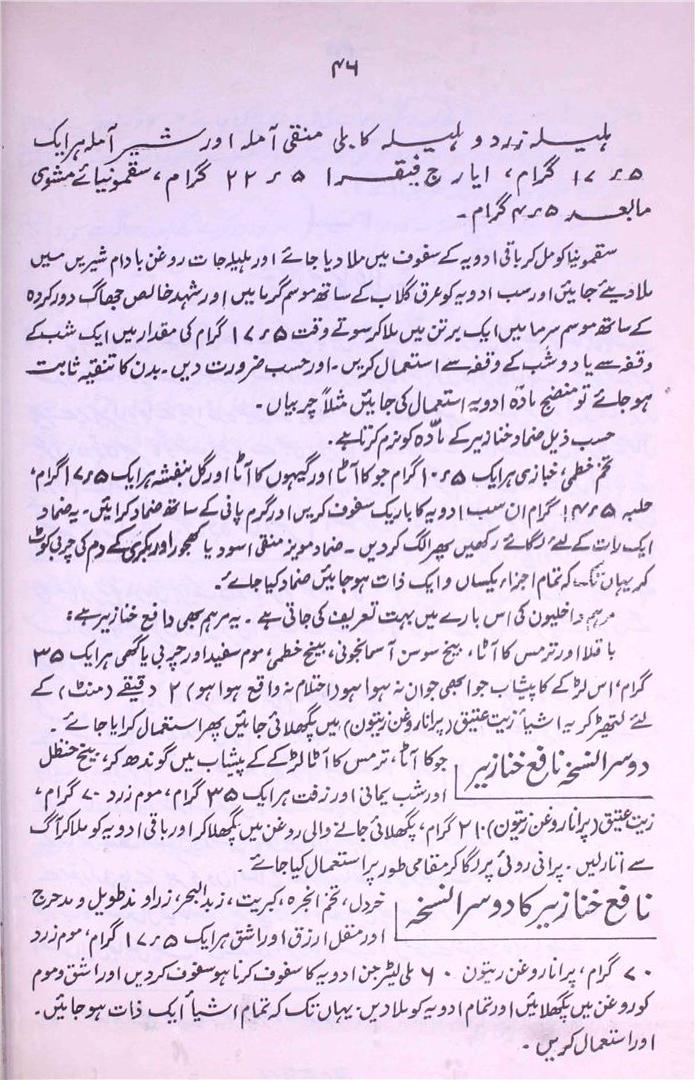 ۴۶
ہلیلہ زرد و ہلیلہ کابلی منقی آملہ اور شیر آملہ ہر ایک
۱۷٫۵ گرام، ایارج فیقرا ۲۲٫۵ گرام، سقمونیائے مشوی
مابعد ۴٫۵ گرام۔
سقمونیا کو مل کر باقی ادویہ کے سفوف میں ملا دیا جائے اور ہلیلہ جات روغن بادام شیریں میں
ملا دیئے جائیں اور سب ادویہ کو عرق گلاب کے ساتھ موسم گرما میں اور شہد خالص جھاگ دور کردہ
کے ساتھ موسم سرما میں ایک برتن میں ملا کر سوتے وقت ۱۷٫۵ گرام کی مقدار میں ایک شب کے
وقفہ سے یا دو شب کے وقفہ سے استعمال کریں۔ اور حسب ضرورت دیں۔ بدن کا تنقیہ ثابت
ہو جائے تو منضج مادہ ادویہ استعمال کی جائیں مثلاً چربیاں۔
حسب ذیل ضماد خنازیر کے مادّہ کو نرم کرتا ہے۔
تخم خطمی، خبازی ہر ایک ۱۰٫۵ گرام جو کا آٹا اور گیہوں کا آٹا اور گل بنفشہ ہر ایک ۱۷٫۵ گرام،
حلبہ ۱۴٫۵ گرام ان سب ادویہ کا باریک سفوف کریں اور گرم پانی کے ساتھ ضماد کرائیں۔ یہ ضماد
ایک رات کے لئے لگائے رکھیں پھر الگ کردیں۔ ضماد مویز منقی اسود یا کھجور اور بکری کے دم کی چربی کوٹ
کر یہاں تک کہ تمام اجزاء یکساں و ایک ذات ہو جائیں ضماد کیا جائے۔
مرہم داخلیون کی اس بارے میں بہت تعریف کی جاتی ہے۔ یہ مرہم بھی دافع خنازیر ہے:
باقلا اور ترمس کا آٹا، بیخ سوسن آسمانجونی، بیخ خطمی، موم سفید اور چربی یا گھی ہر ایک ۳۵
گرام، اس لڑکے کا پیشاب جو ابھی جوان نہ ہوا ہو (احتلام نہ واقع ہوا ہو) ۲ دقیقے (منٹ) کے
لئے لتھڑ کر یہ اشیائ زیت عتیق (پرانا روغن زیتون) میں پگھلائی جائیں پھر استعمال کرایا جائے۔
دوسرا نسخہ نافع خنازیر جو کا آٹا، ترمس کا آٹا لڑکے کے پیشاب میں گوندھ کر، بیخ حنظل
اور شب یمانی اور زفت ہر ایک ۳۵ گرام، موم زرد ۷۰ گرام،
زیت عتیق (پرانا روغن زیتون) ۲۱۰ گرام، پگھلائی جانے والی روغن میں پگھلا کر اور باقی ادویہ کو ملا کر آگ
سے اتار لیں۔ پرانی روئی پر لگا کر مقامی طور پر استعمال کیا جائے
نافع خنازیر کا دوسرا نسخہ خردل، تخم انجرہ، کبریت، زبد البحر، زراوند طویل و مدحرج
اور مقل ارزق اور اشق ہر ایک ۱۷٫۵ گرام، موم زرد
۷۰ گرام، پرانا روغن زیتون ۶۰ ملی لیٹر جن ادویہ کا سفوف کرنا ہو سفوف کردیں اور اشق و موم
کو روغن میں پگھلائیں اور تمام ادویہ کو ملا دیں۔ یہاں تک کہ تمام اشیائ ایک ذات ہو جائیں۔
اور استعمال کریں۔